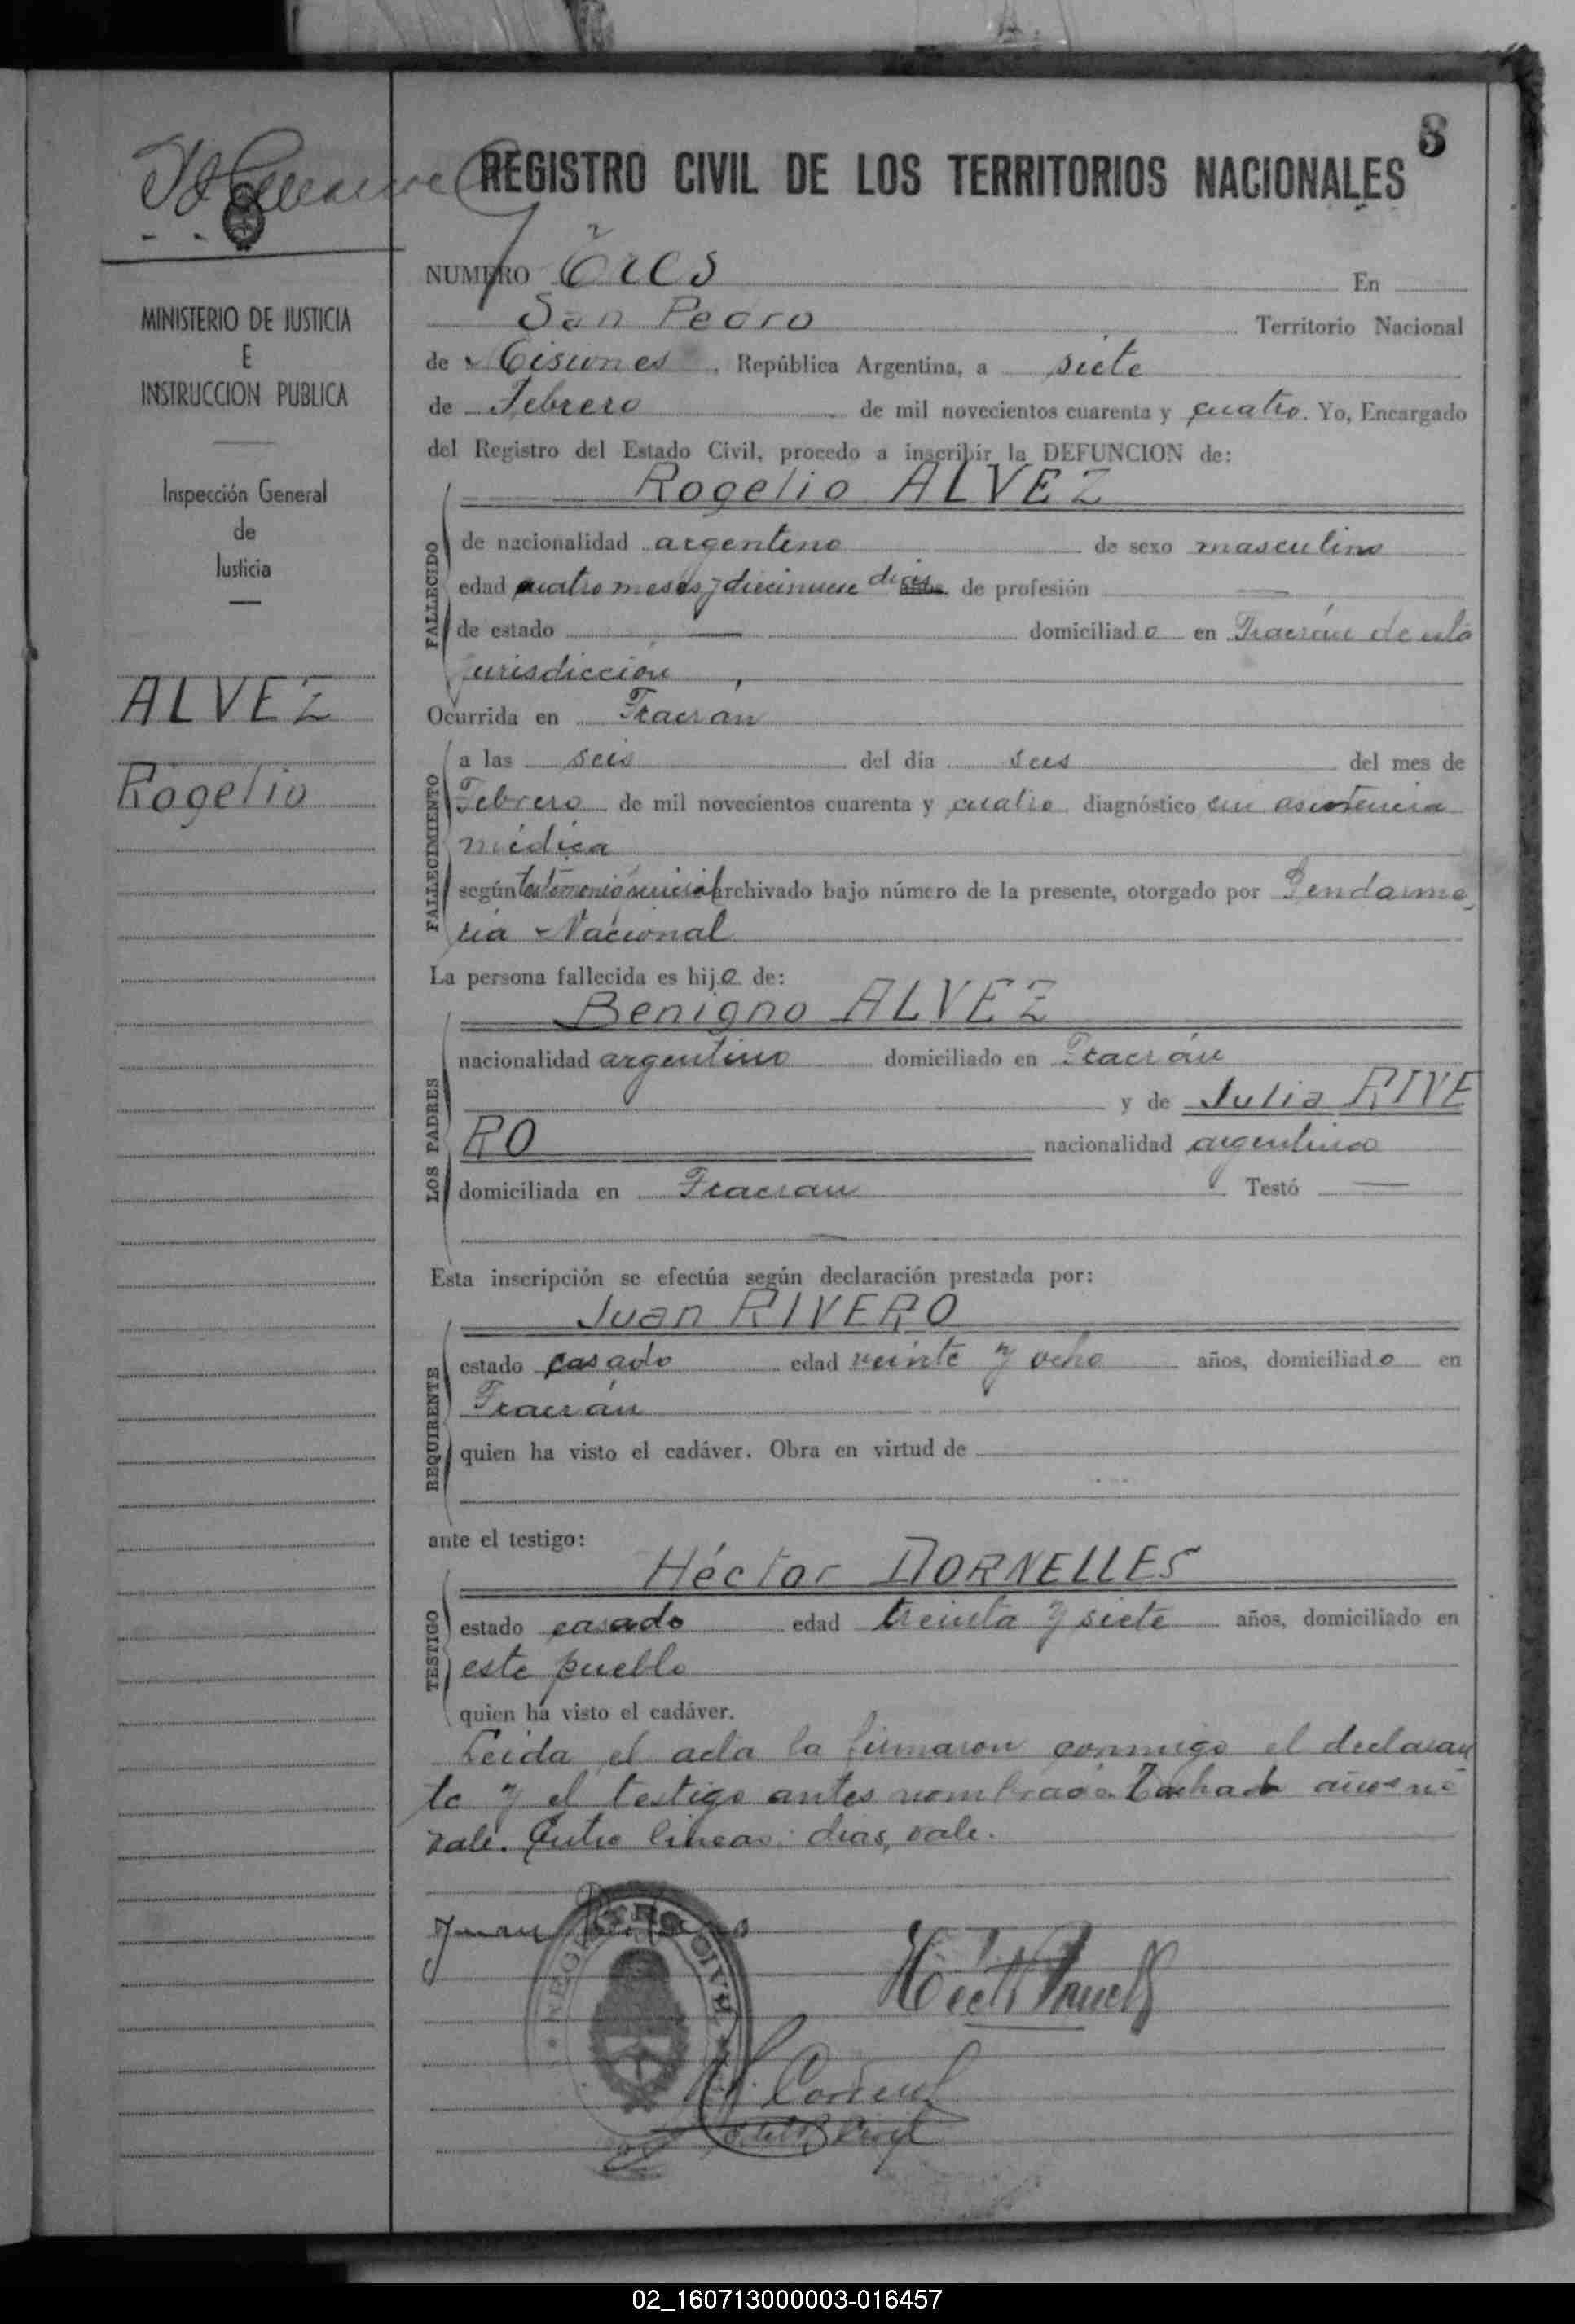 8
REGISTRO CIVIL DE LOS TERRITORIOS NACIONALES
MINISTERIO DE JUSTICIA
E
INSTRUCCION PUBLICA
Inspección General
de
Justicia
ALVEZ
Rogelio
NUMERO Tres En
San Pedro Territorio Nacional
de Misiones, República Argentina, a siete
de Febrero de mil novecientos cuarenta y cuatro. Yo, Encargado
del Registro del Estado Civil, procedo a inscribir la DEFUNCION de:
Rogelio ALVEZ
FALLECIDO
de nacionalidad argentino de sexo masculino
edad cuatro meses y diecinueve dias años de profesión —
de estado — domiciliado en Fracrán de esta
jurisdicción
Ocurrida en Fracrán
FALLECIMIENTO
a las seis del día seis del mes de
Febrero de mil novecientos cuarenta y cuatro diagnóstico sin asistencia
médica
según testimonio archivado bajo número de la presente, otorgado por Gendarme
ria Nacional
La persona fallecida es hijo de:
LOS PADRES
Benigno ALVEZ
nacionalidad argentino domiciliado en Fracrán
y de Julia RIVE
RO nacionalidad argentina
domiciliada en Fracran Testó —
Esta inscripción se efectúa según declaración prestada por:
REQUIRENTE
Juan RIVERO
estado casado edad veinte y ocho años, domiciliado en
Fracrán
quien ha visto el cadáver. Obra en virtud de
ante el testigo:
TESTIGO
Héctor DORNELLES
estado casado edad treinta y siete años, domiciliado en
este pueblo
quien ha visto el cadáver.
Leida el acta la firmaron conmigo el declaran
te y el testigo antes nombrado. Tachado años no
vale. Entre lineas: dias, vale.
Juan
REGISTRO CIVIL
02_160713000003-016457